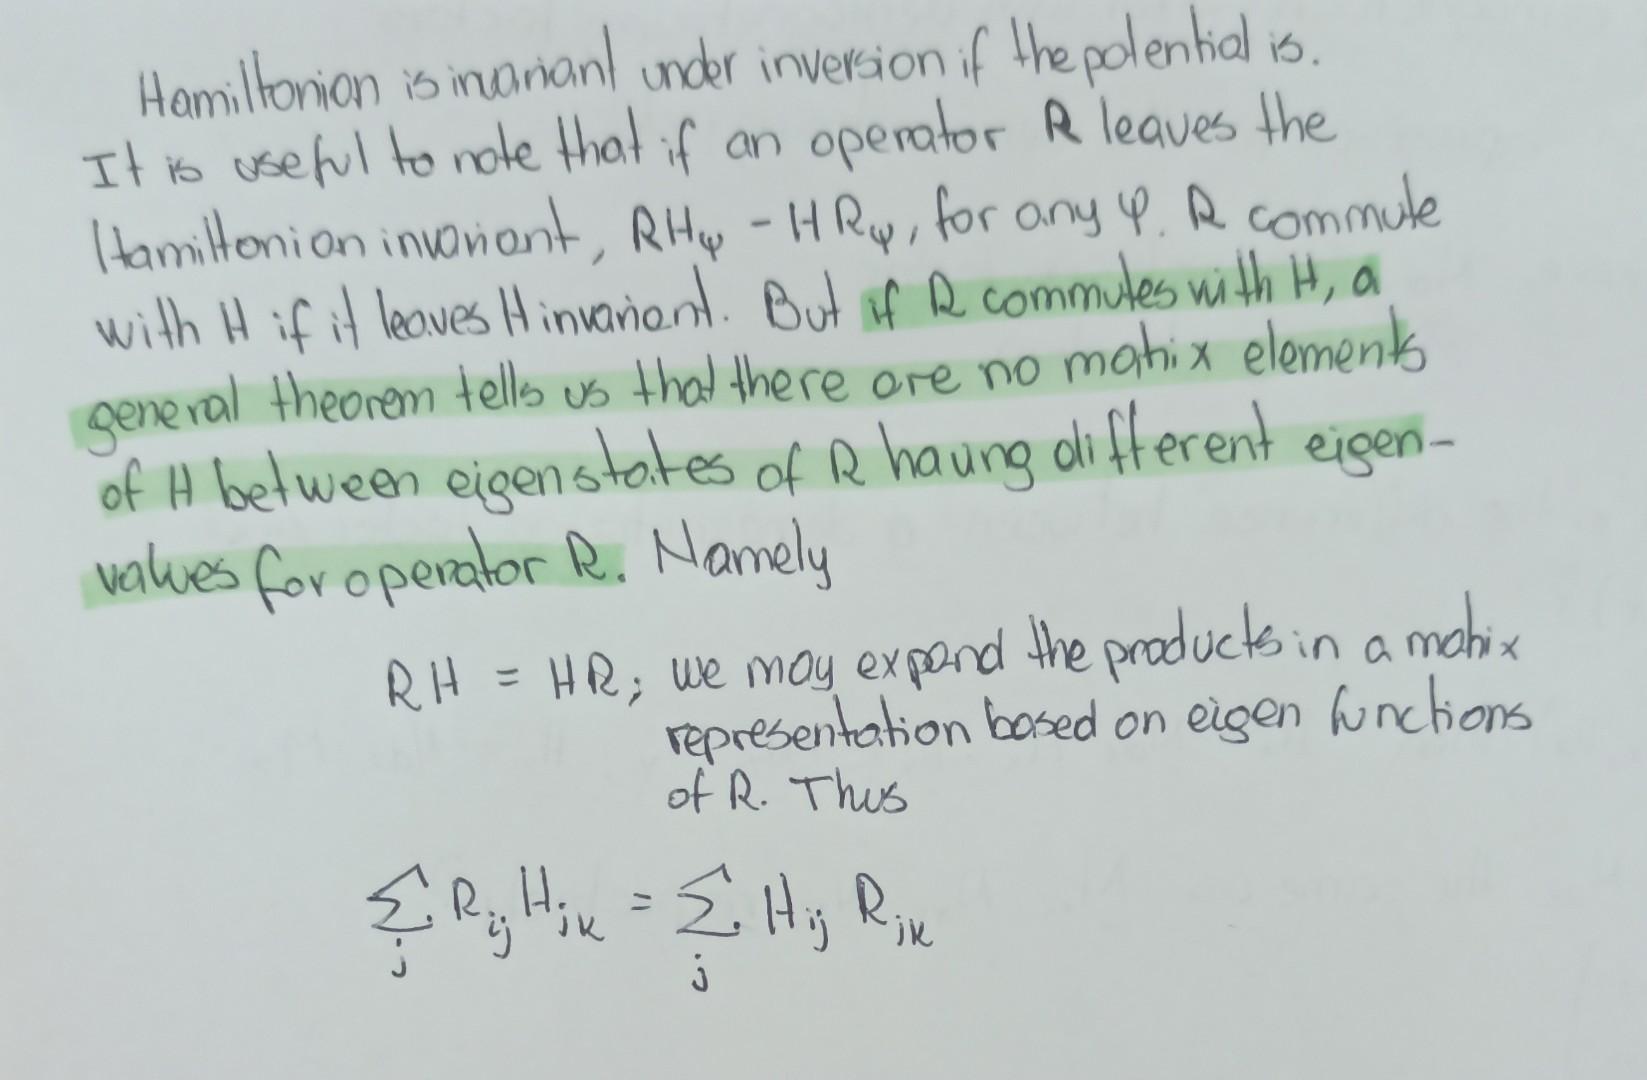 Hamiltonian is invariant under inversion if the potential is.
It is useful to note that if an operator R leaves the
Hamiltonian invariant, RHψ - HRψ, for any φ. R commute
with H if it leaves H invariant. But if R commutes with H, a
general theorem tells us that there are no matrix elements
of H between eigenstates of R having different eigen-
values for operator R. Namely
RH = HR; we may expand the products in a matrix
representation based on eigen functions
of R. Thus
∑_j R_ij H_jk = ∑_j H_ij R_jk